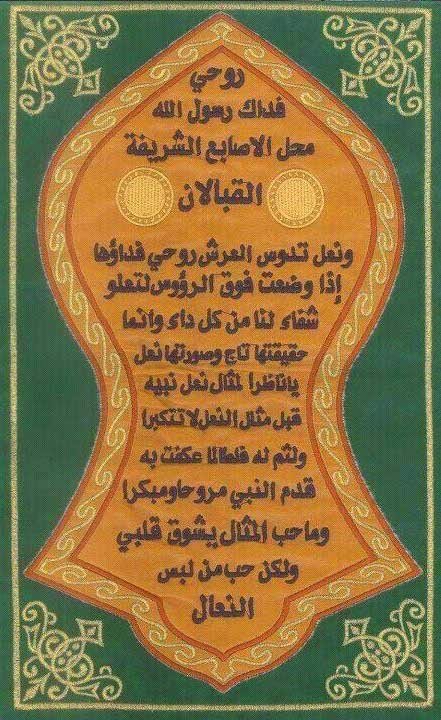 روحي
فداك رسول الله
محل الاصابع الشريفة
القبالان
ونعل تدوس العرش روحي فداؤها
إذا وضعت فوق الرؤوس لتعلو
شفاء لنا من كل داء وانما
حقيقتها تاج وصورتها نعل
ياناظرا لمثال نعل نبيه
قبل مثال النعل لا تتكبرا
ولثم له فلطالما عكفت به
قدم النبي مروحا ومبكرا
وما حب المثال يشوق قلبي
ولكن حب من لبس
النعال